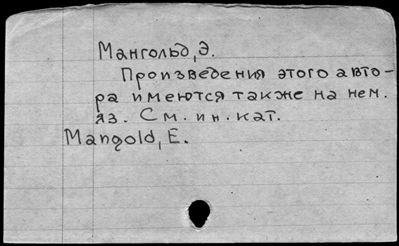 Мангольд, Э.
Произведения этого авто-
ра имеются также на нем.
яз. См. ин. кат.
Mangold, E.